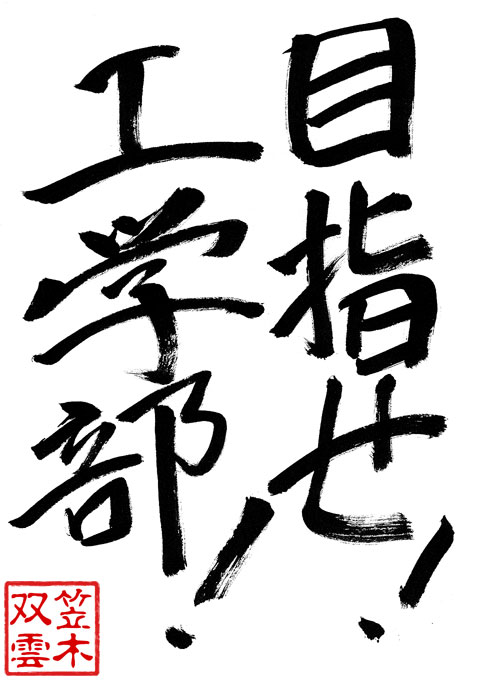 目指せ!
工学部!
笠木
双雲